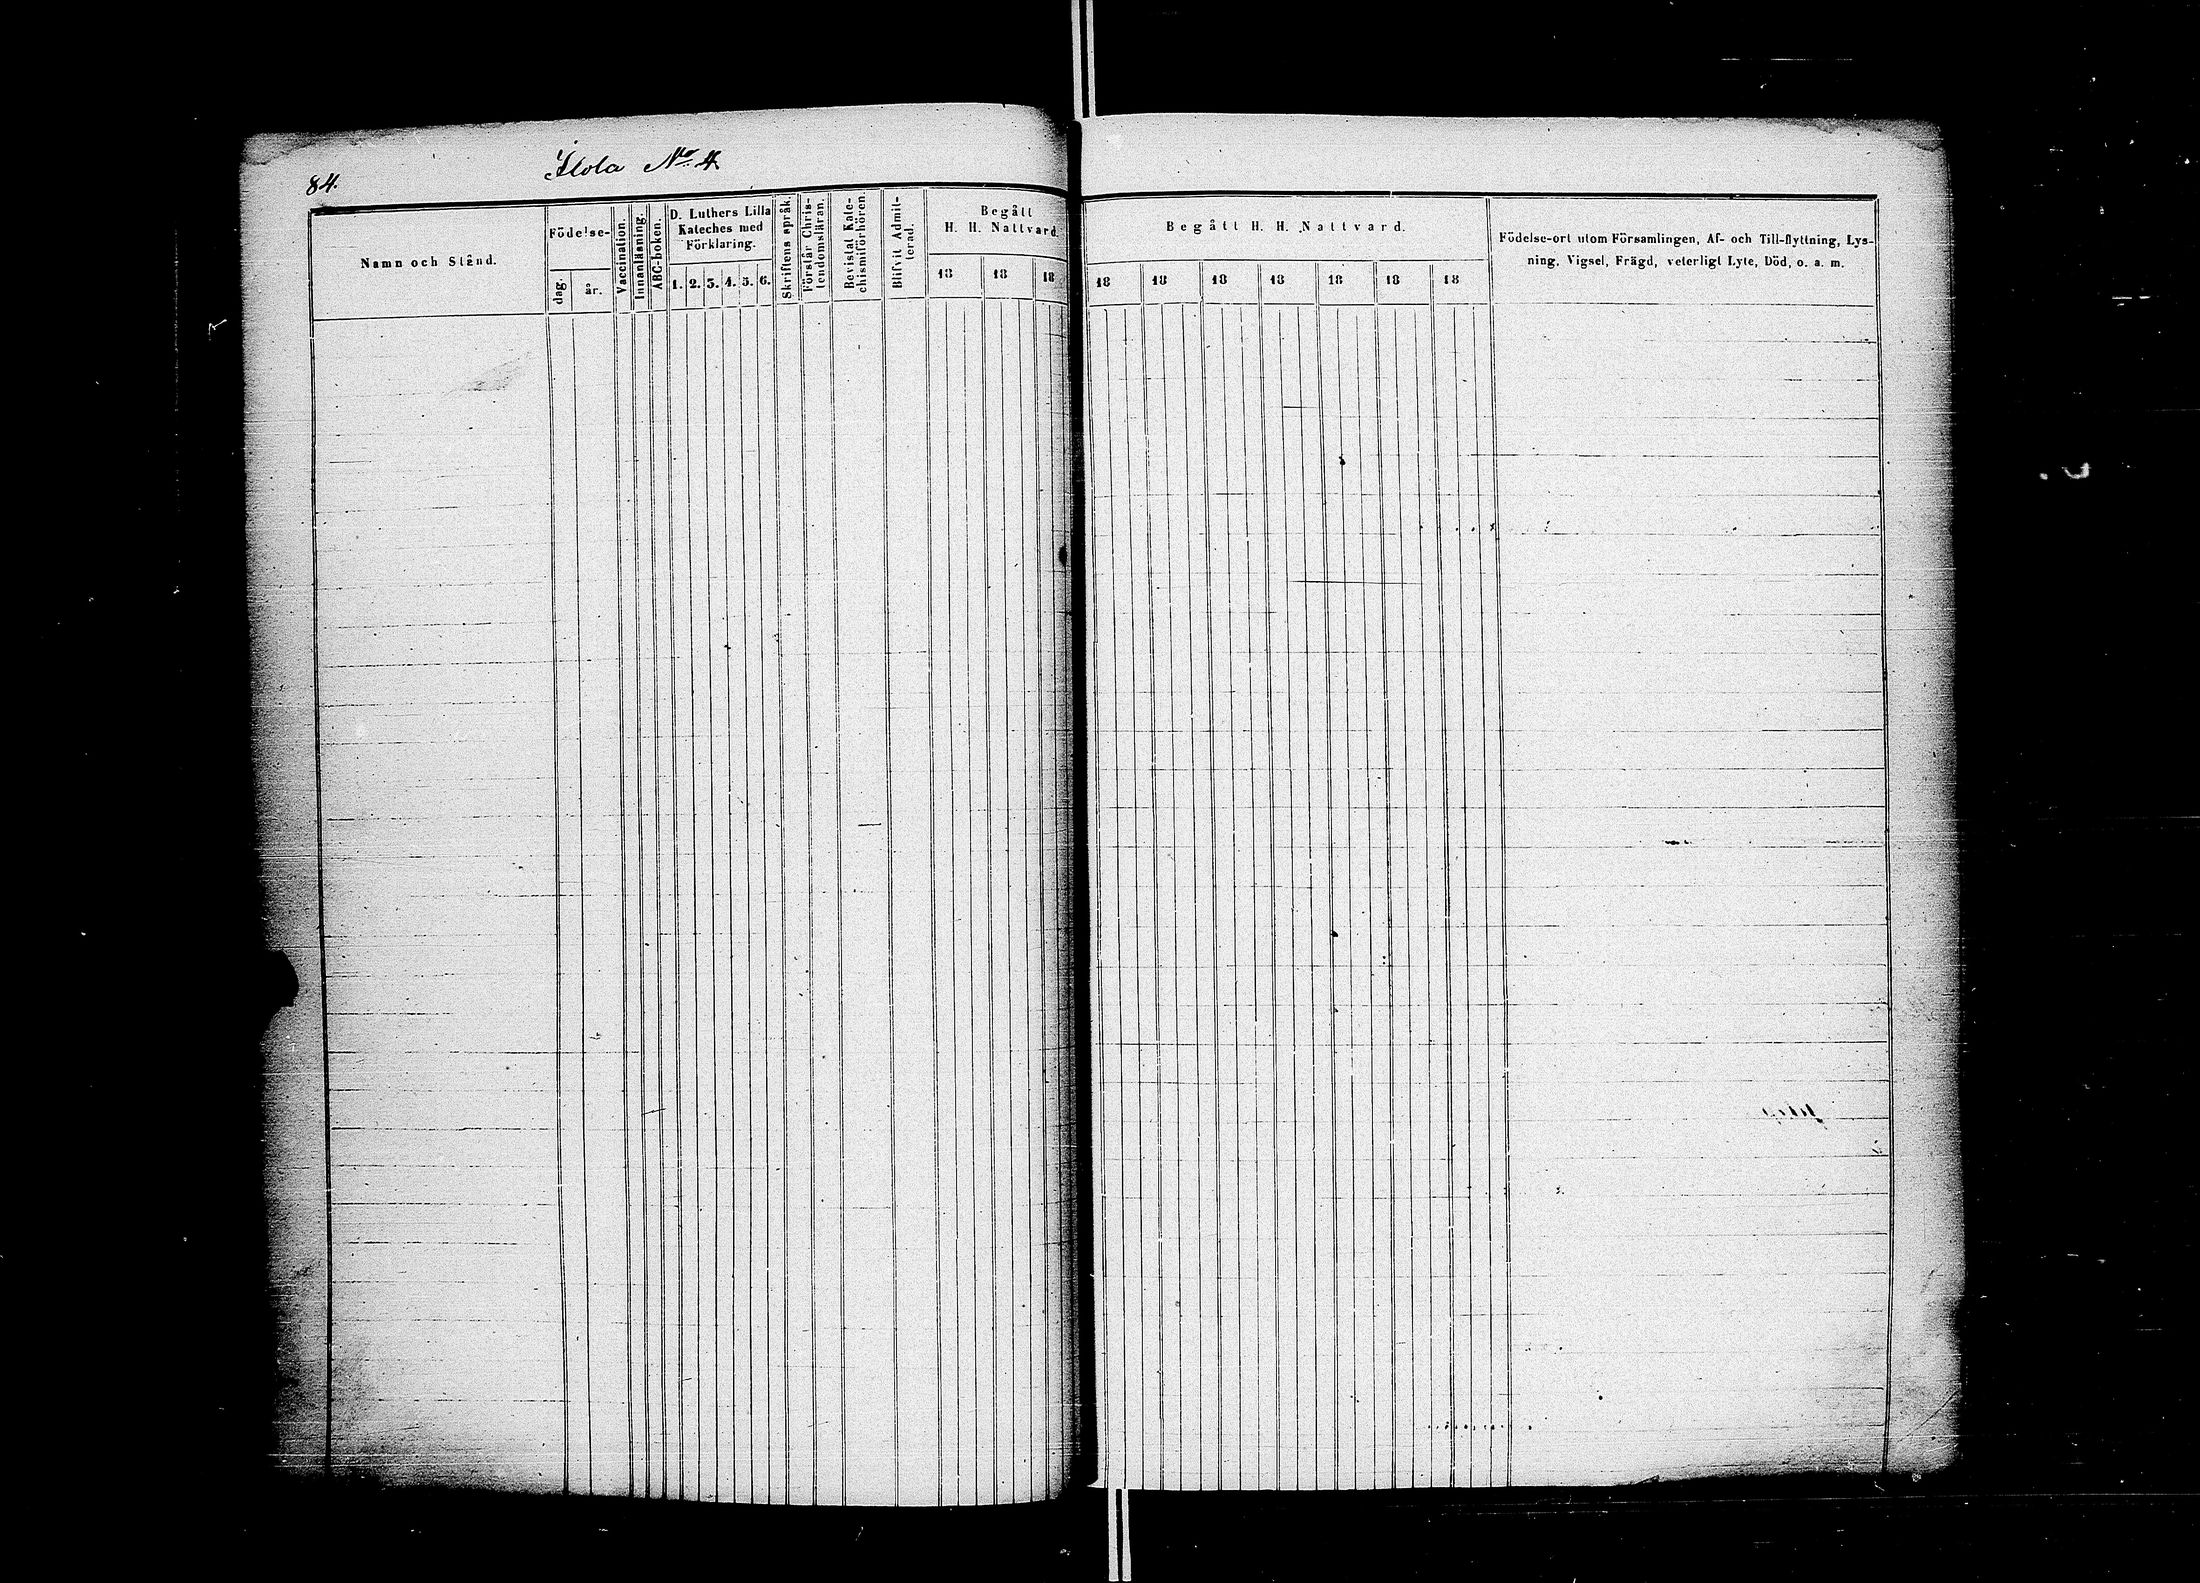 84.
Ilola No 4
Namn och Stånd.
Födelse-
dag.
år.
Vaccination.
Innanläsning.
ABC-boken.
D. Luthers Lilla
Kateches med
Förklaring.
1. 2. 3. 4. 5. 6.
Skriftens språk.
Förstår Chris-
tendomsläran.
Bevistat Kate-
chismiförhören.
Blifvit Admit-
terad.
Begått
H. H. Nattvard.
18 18 18
Begått H. H. Nattvard.
18 18 18 18 18 18 18
Födelse-ort utom Församlingen, Af- och Till-flyttning, Lys-
ning, Vigsel, Frägd, veterligt Lyte, Död, o. a. m.